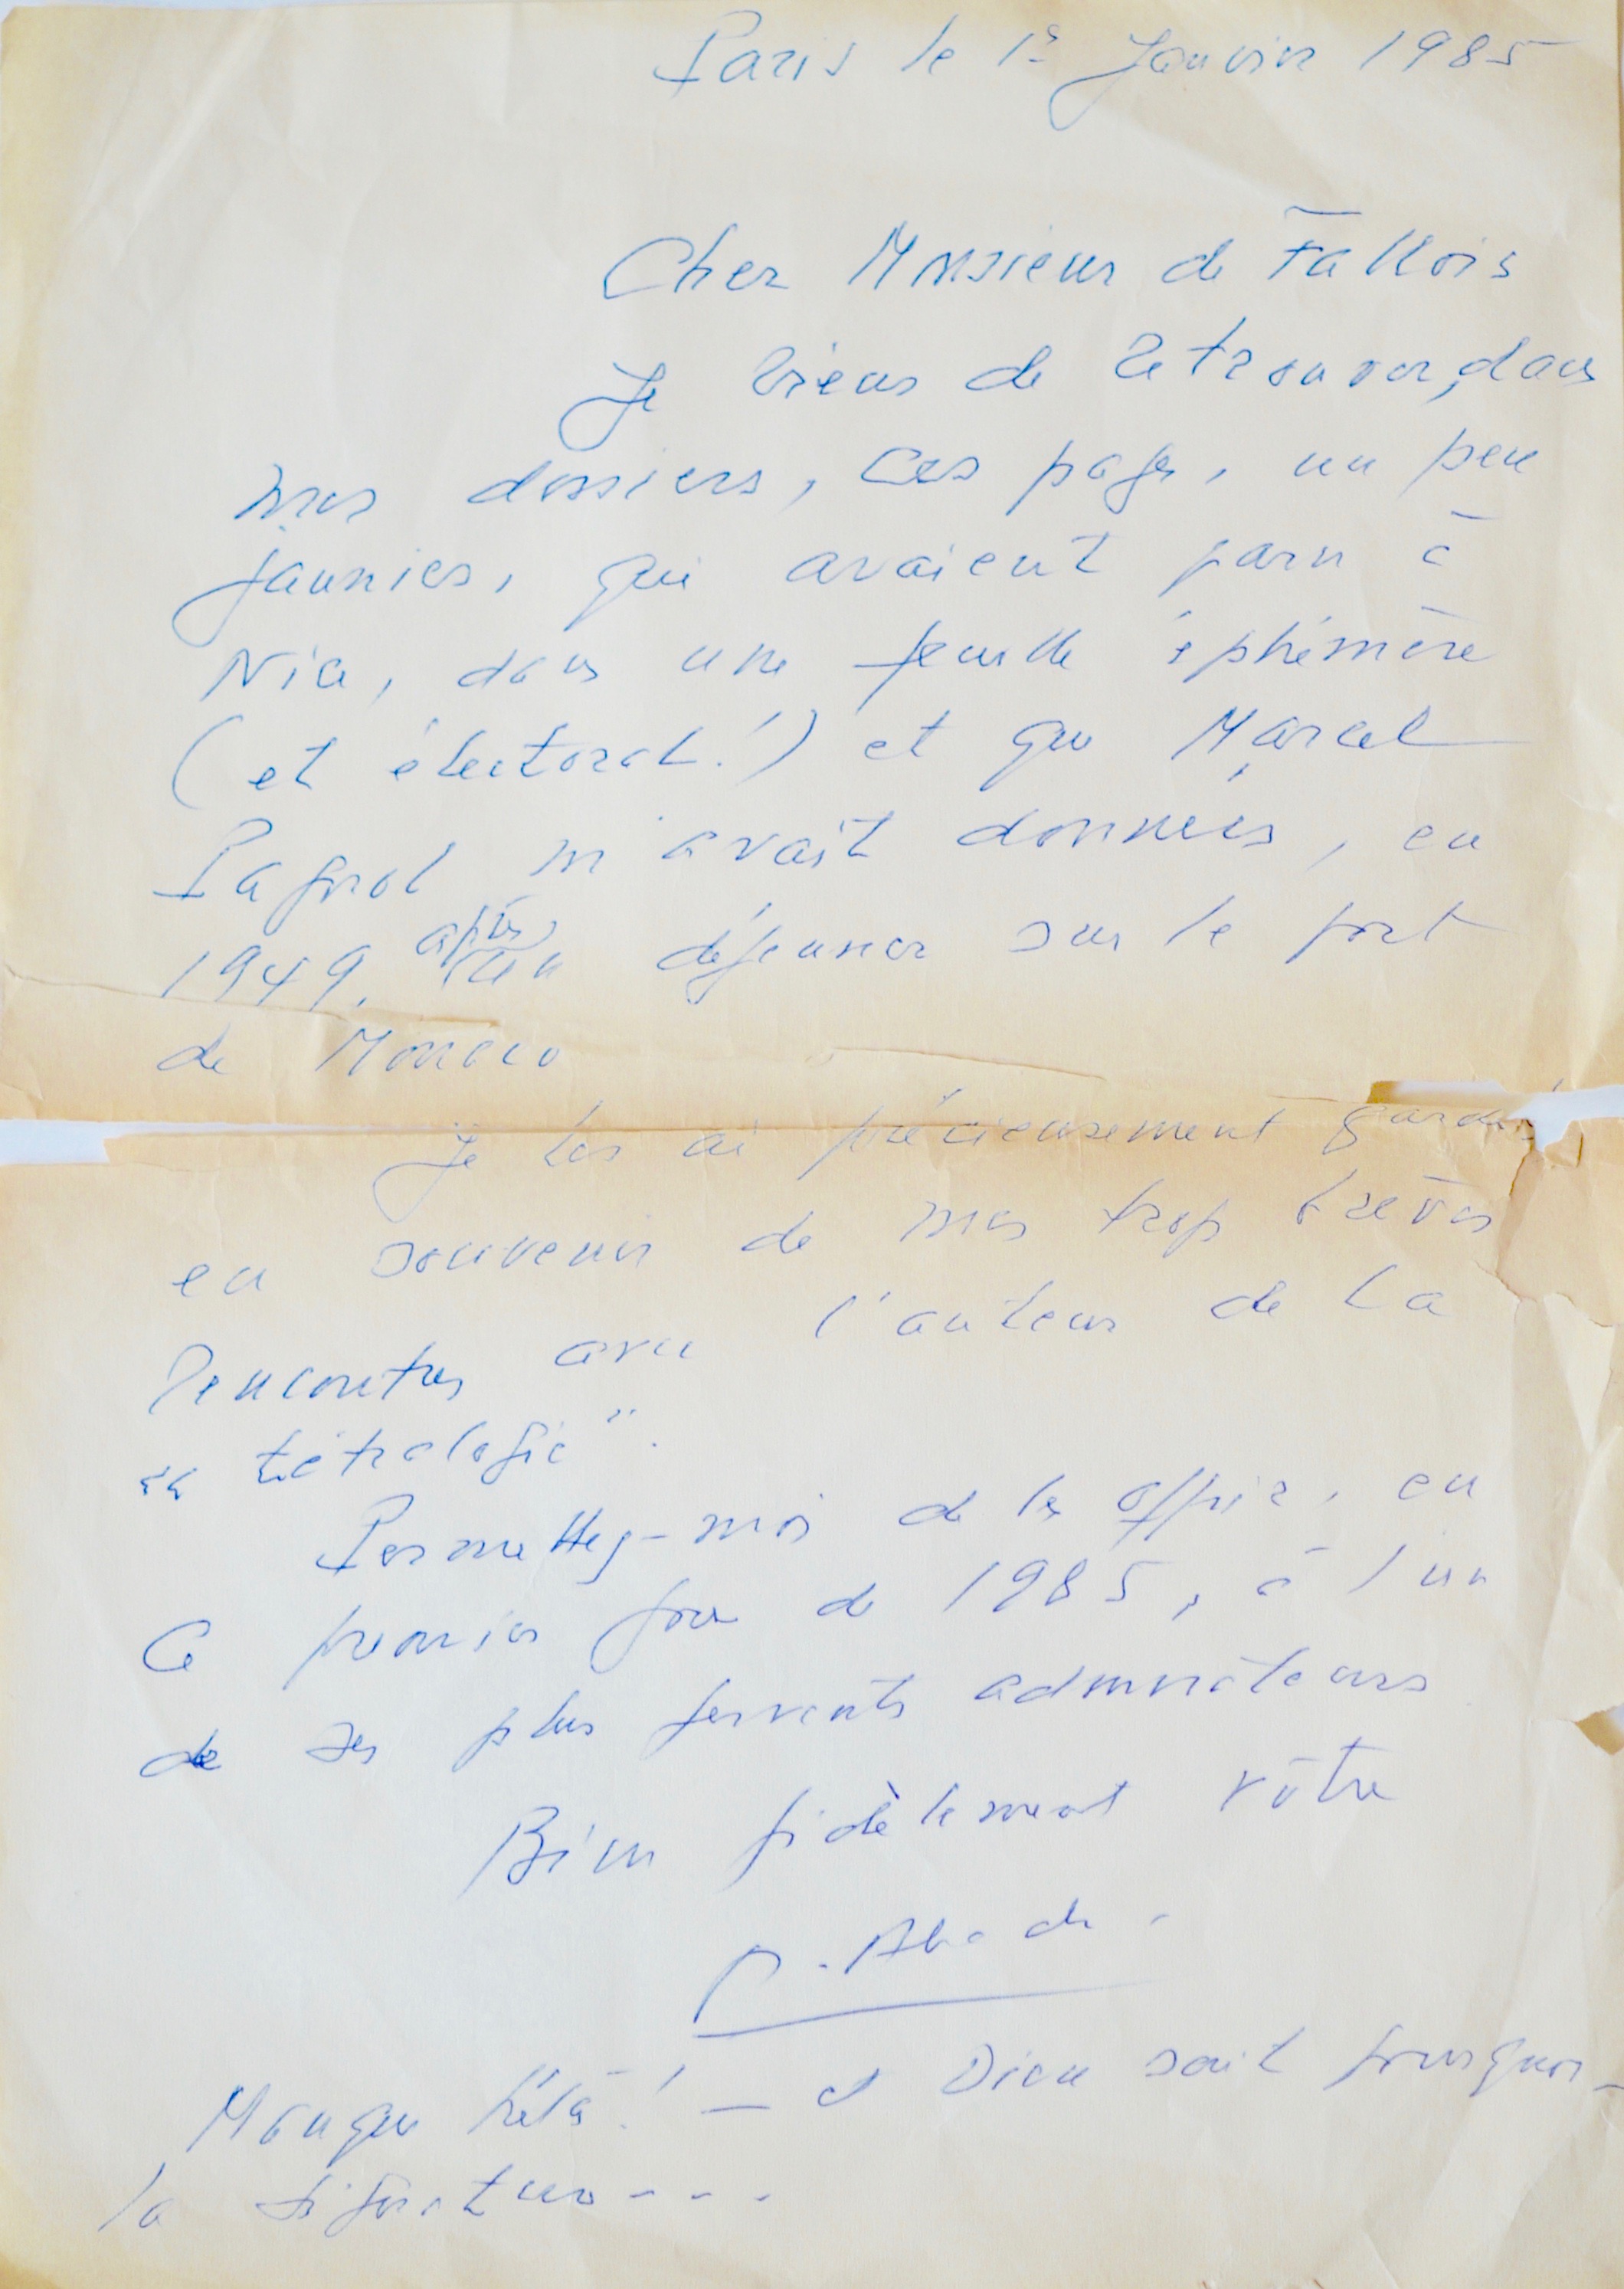 Paris le 1er Janvier 1985
Cher Monsieur de Fallois
Je viens de retrouver, dans
mes dossiers, ces pages, un peu
jaunies, qui avaient paru à
Nice, dans une feuille éphémère
(et électorale!) et que Marcel
Pagnol m'avait données, en
1949, après un déjeuner sur le port
de Monaco
Je les ai précieusement gardées
en souvenir de mes trop brèves
rencontres avec l'auteur de la
"tétralogie".
Permettez-moi de les offrir, en
ce premier jour de 1985, à l'un
de ses plus fervents admirateurs
Bien fidèlement vôtre
Manque hélas! — et Dieu sait pourquoi —
la signature - - -